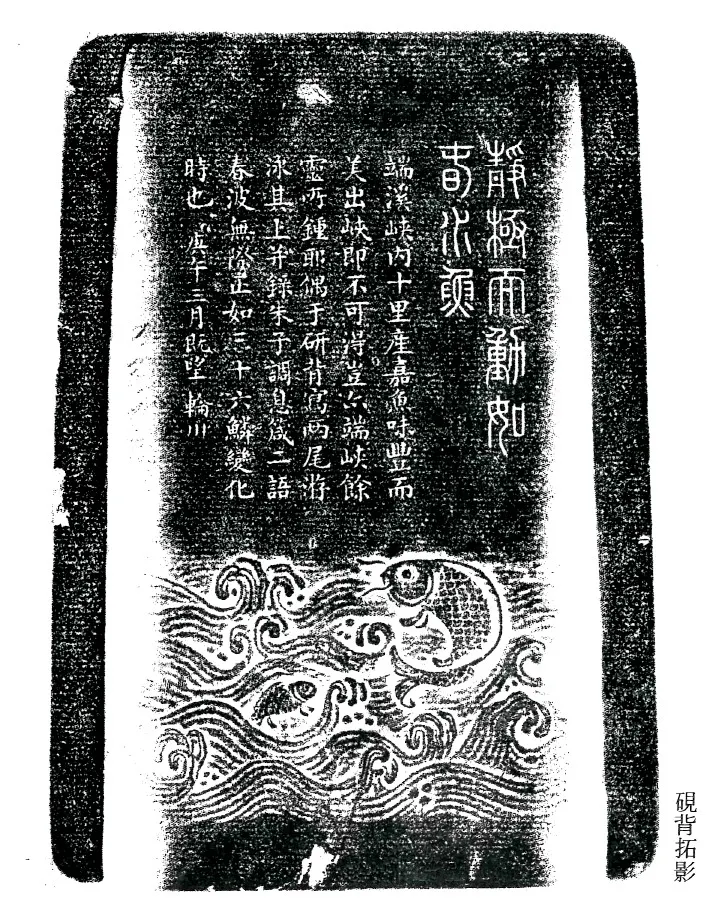 靜極而動如
春沼魚
端溪峽內十里產嘉魚味豐而
美出峽即不可得豈亦端峽餘
靈所鍾耶偶于研背寫兩尾游
泳其上并錄朱子調息箴二語
春波無際正如三十六鱗變化
時也 三月既望 輪川
硯背拓影